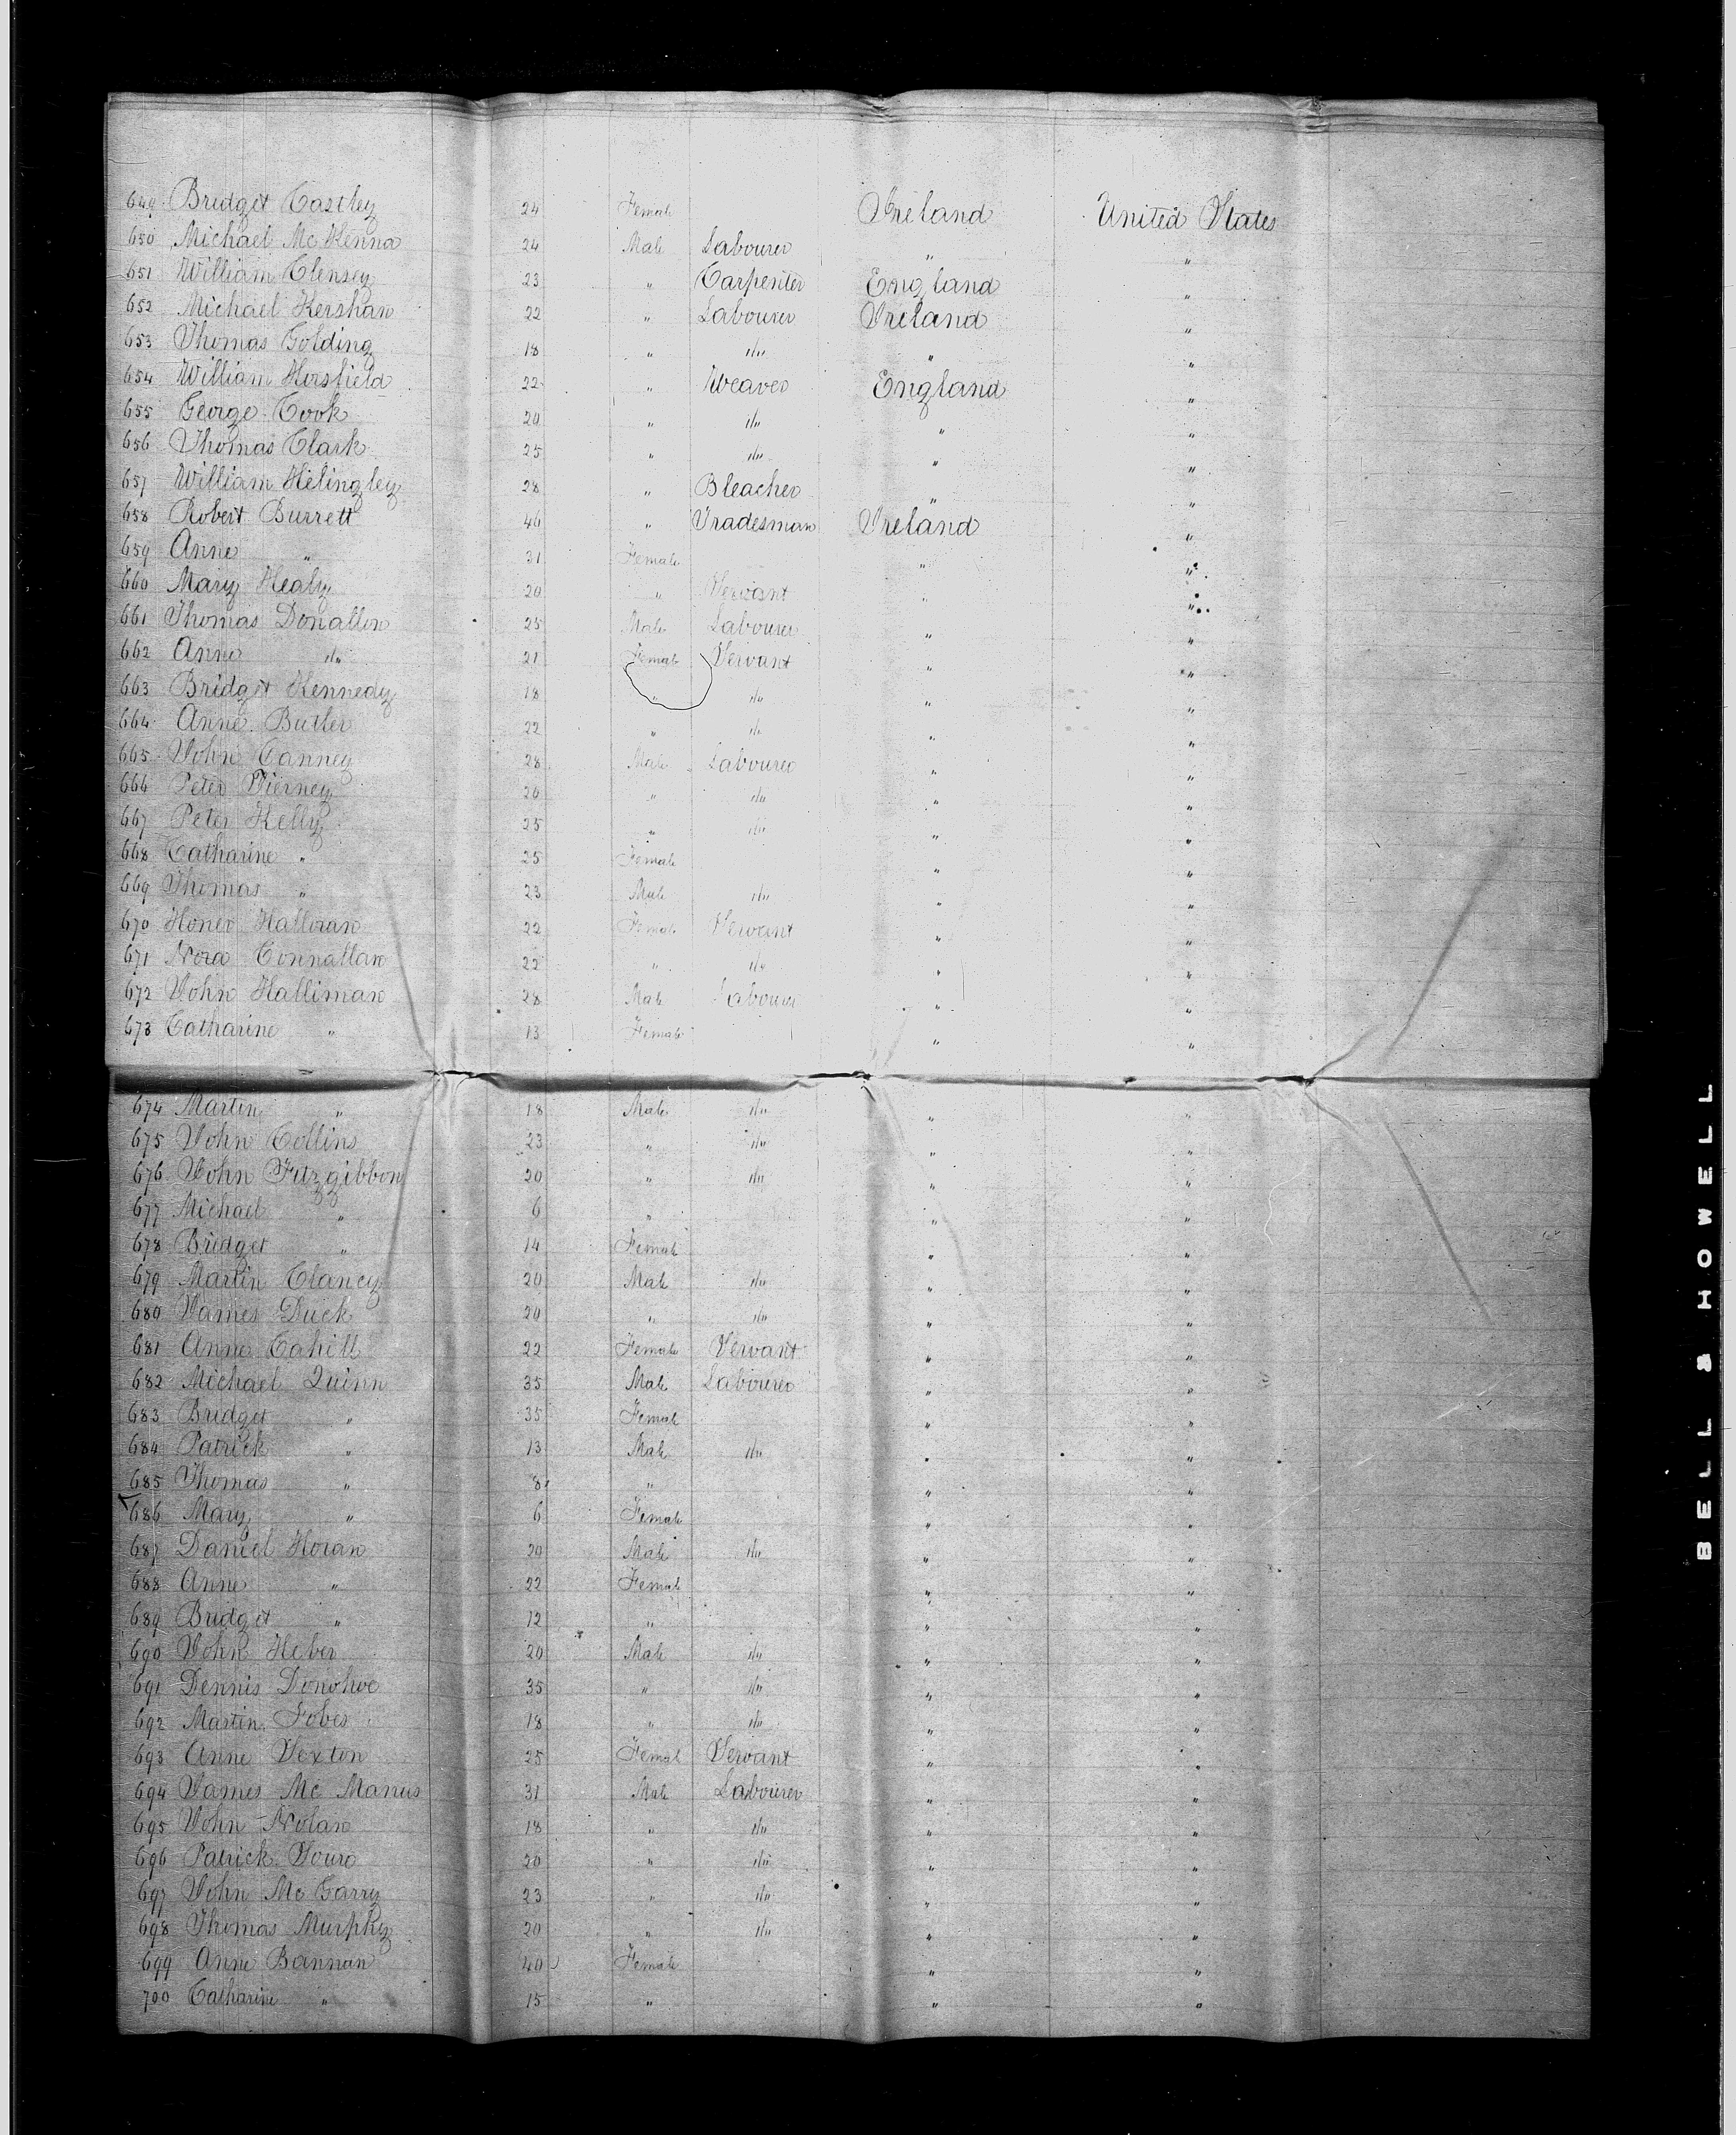 649 Bridget Costley 24 Female Ireland United States
650 Michael McKenna 24 Male Labourer " "
651 William Clensey 23 " Carpenter England "
652 Michael Kershaw 22 " Labourer Ireland "
653 Thomas Golding 18 " do " "
654 William Horsfield 22 " Weaver England "
655 George Cook 24 " do " "
656 Thomas Clark 25 " do " "
657 William Helingley 28 " Bleacher " "
658 Robert Burrett 46 " Tradesman Ireland "
659 Anne " 31 Female " "
660 Mary Healy 20 " Servant " "
661 Thomas Donallon 25 Male Labourer " "
662 Anne do 21 Female Servant " "
663 Bridget Kennedy 18 " do " "
664 Anne Butler 22 " do " "
665 John Canney 28 Male Labourer " "
666 Peter Tierney 20 " do " "
667 Peter Kelly 25 " do " "
668 Catharine " 25 Female " "
669 Thomas " 23 Male do " "
670 Honer Halloran 22 Female Servant " "
671 Nora Connallan 22 " do " "
672 John Halliman 28 Male Labourer " "
673 Catharine " 13 Female " "
674 Martin " 18 Male do " "
675 John Collins 23 " do " "
676 John Fitzgibbon 20 " do " "
677 Michael " 6 " " "
678 Bridget " 14 Female " "
679 Martin Clancey 20 Male do " "
680 James Duck 20 " do " "
681 Anne Cahill 22 Female Servant " "
682 Michael Quinn 35 Male Labourer " "
683 Bridget " 35 Female " "
684 Patrick " 13 Male do " "
685 Thomas " 8 " " "
686 Mary " 6 Female " "
687 Daniel Horan 20 Male do " "
688 Anne " 22 Female " "
689 Bridget " 12 " " "
690 John Heber 20 Male do " "
691 Dennis Donohoe 35 " do " "
692 Martin Fobes 18 " do " "
693 Anne Sexton 25 Female Servant " "
694 James Mc Manus 31 Male Labourer " "
695 John Nolan 18 " do " "
696 Patrick 20 " do " "
697 John McGarry 23 " do " "
698 Thomas Murphy 20 " do " "
699 Anne Bannan 40 Female " "
700 Catharine " 15 " " "
BELL & HOWELL